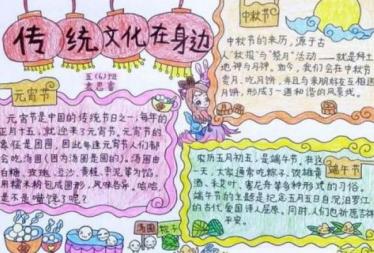 传统文化在身边
五(6)班
袁思富
元宵节
元宵节是中国的传统节日之一,每年的
正月十五,就迎来了元宵节。元宵节的
象征是团圆。因此每逢元宵人们都
会吃汤圆(因为汤圆是圆的)。汤圆由
白糖、玫瑰、豆沙、黄桂、枣泥等为馅,
用糯米粉包成圆形,风味各异。哈哈,
是不是嘴馋了呢?
中秋节
中秋节的来历,源于古
人“秋报”与“祭月”活动——就是拜土
地神与月神。如今,我们会在中秋节
赏月、吃月饼,并且与亲朋好友互相送
月饼,形成了一道和谐的风景线。
端午节
农历五月初五,是端午节,在这
一天,大家通常吃粽子、饮雄黄
酒、冬艾叶、赛龙舟等多种形式的习俗。
端午节的主题是纪念五月五日沉汨罗江
的古代爱国诗人屈原,同时人们也祈愿吉祥
平安。
汤圆
粽子